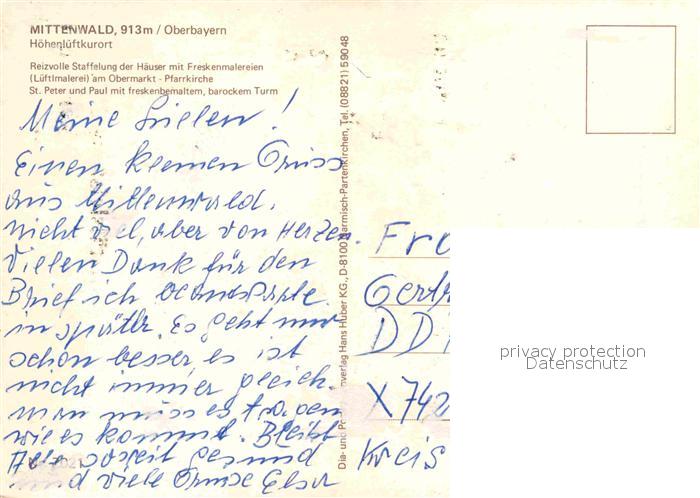 MITTENWALD, 913m / Oberbayern
Höhenluftkurort
Reizvolle Staffelung der Häuser mit Freskenmalereien
(Lüftlmalerei) am Obermarkt - Pfarrkirche
St. Peter und Paul mit freskenbemaltem, barockem Turm
Meine Lieben!
Einen kleinen Gruss
aus Mittenwald.
nicht viel, aber von Herzen.
Vielen Dank für den
Brief ich beantworte
in später. Es geht mir
schon besser es ist
nicht immer gleich.
man muss es tragen
wie es kommt. Bleibt
Alle soweit gesund
und viele Grüsse Elsa
Hans Huber KG., D-8100 Garmisch-Partenkirchen, Tel. (08821) 59048
Fra
Gertr
DD
X742
Kreis
privacy protection
Datenschutz